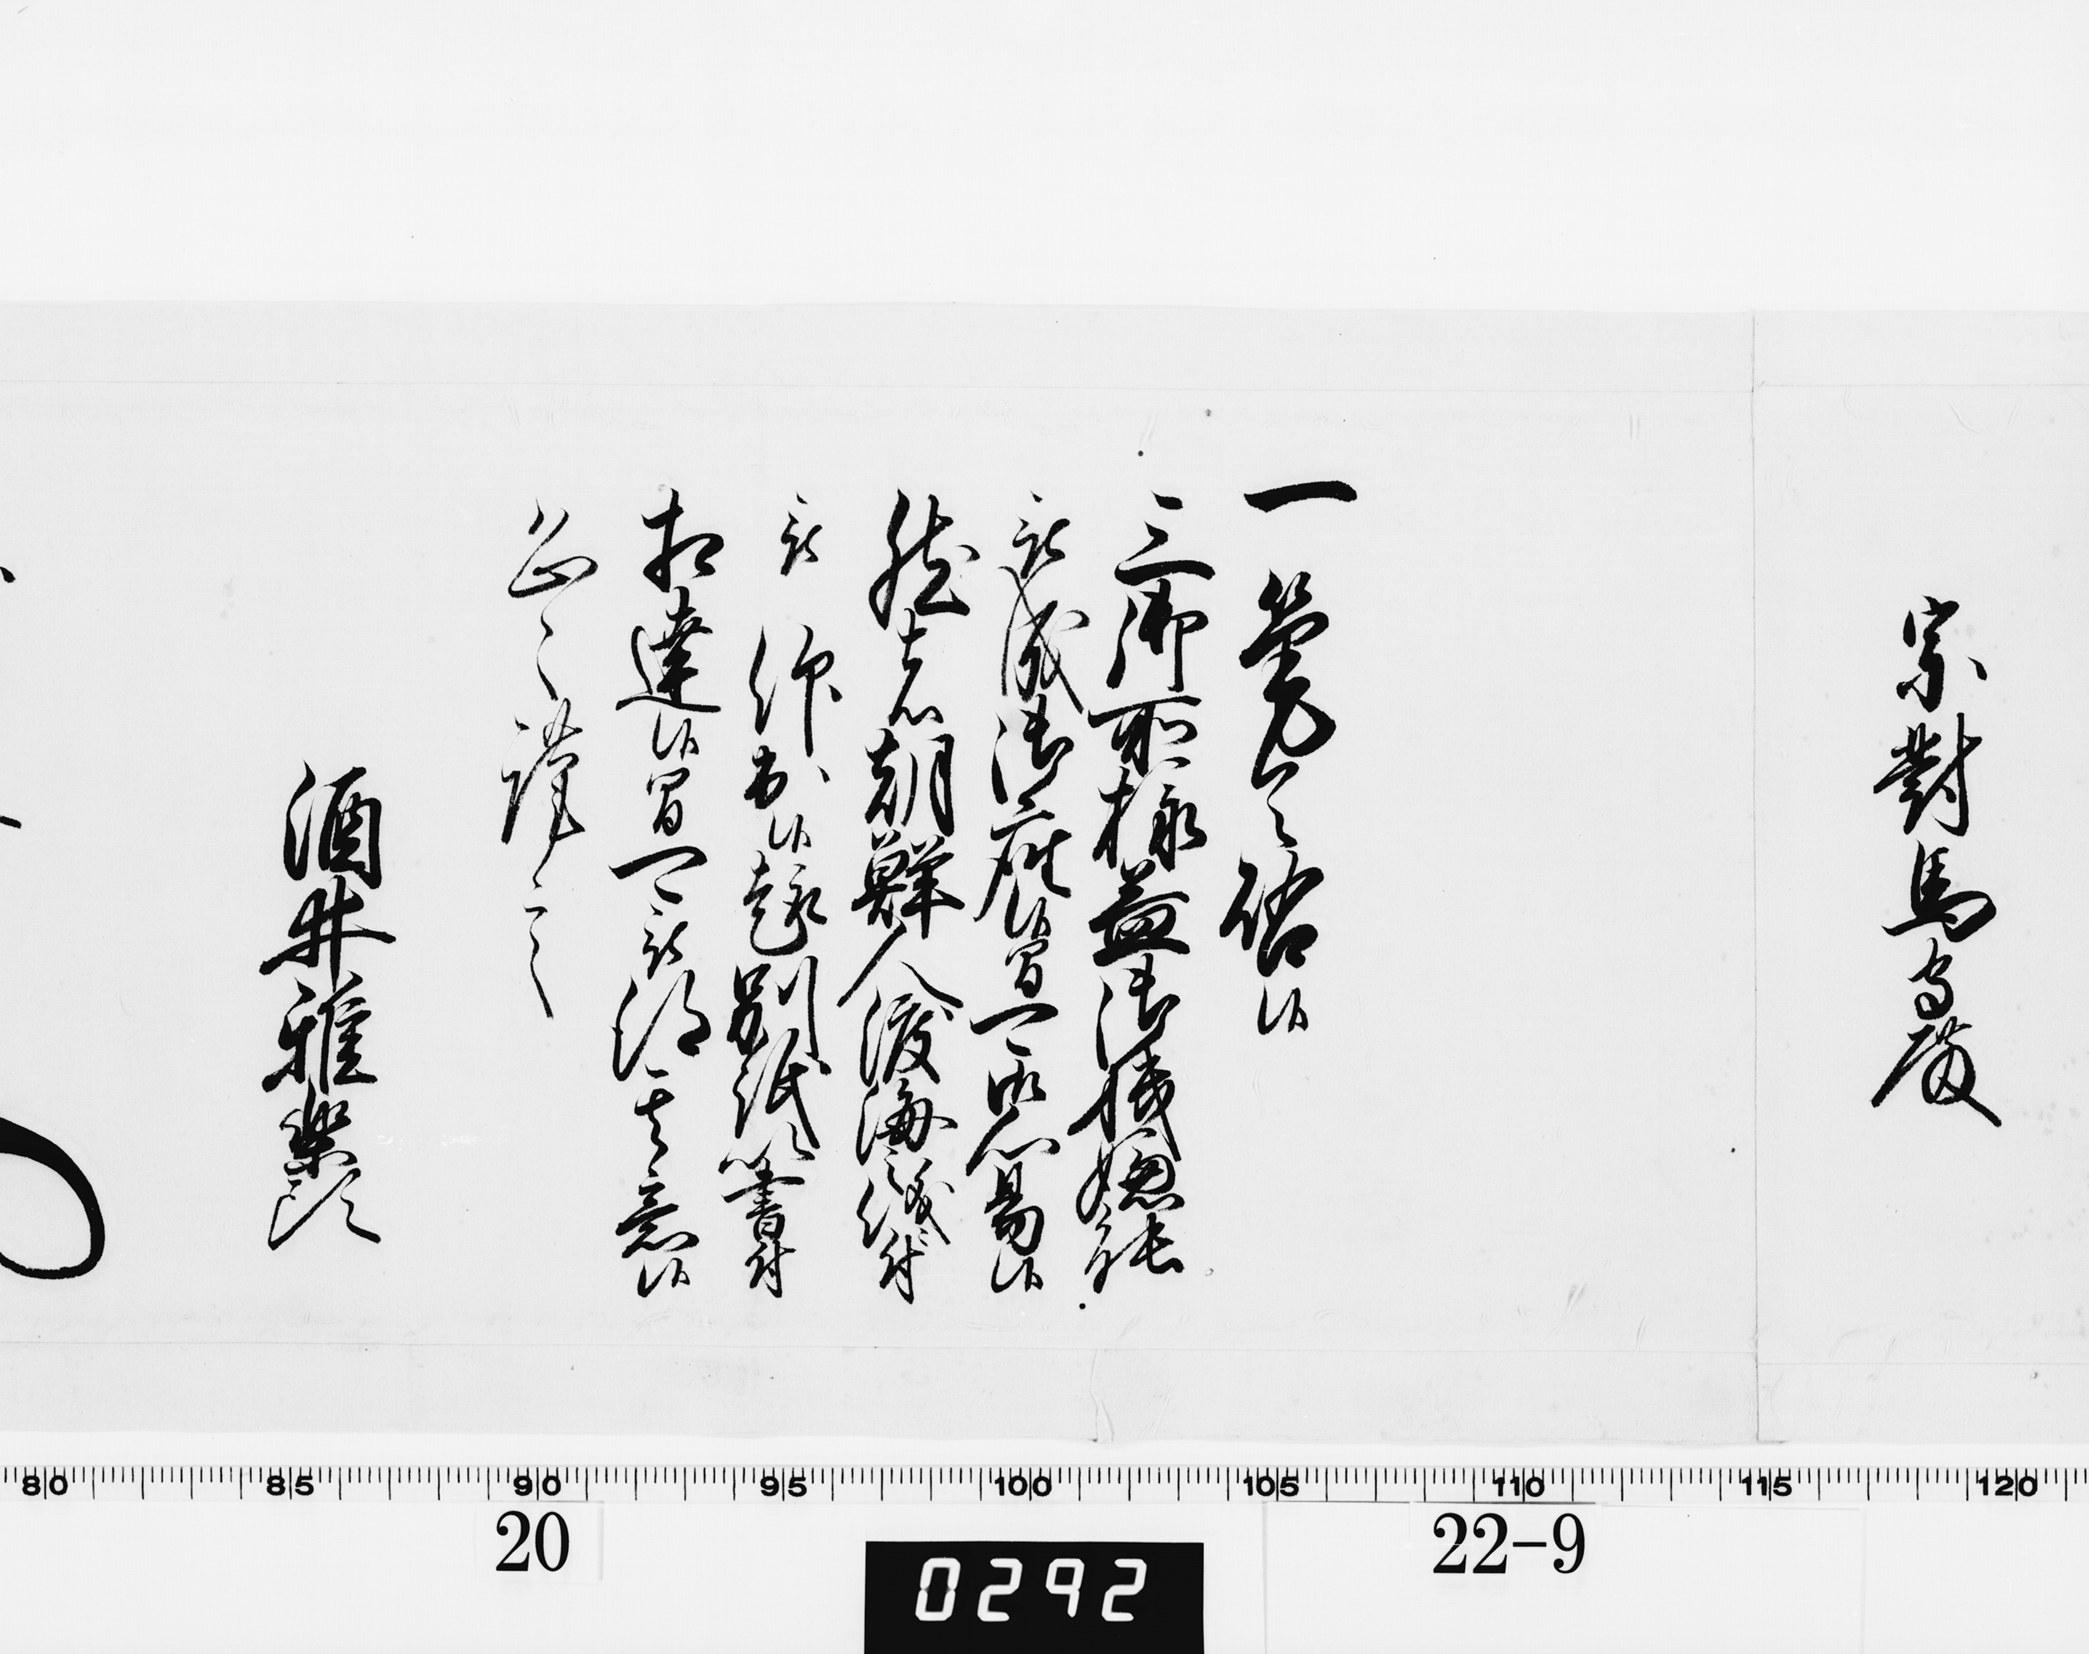 宗對馬守殿
一筆令啓候
三御所様益御機嫌能
被成御座候間可御心易候
然者朝鮮人渡海之儀ニ付
被 仰出候趣別紙以書付
相達候間可被得其意候
恐々謹言
酒井雅楽頭
80 85 90 95 100 105 110 115 120
20
22-9
0292